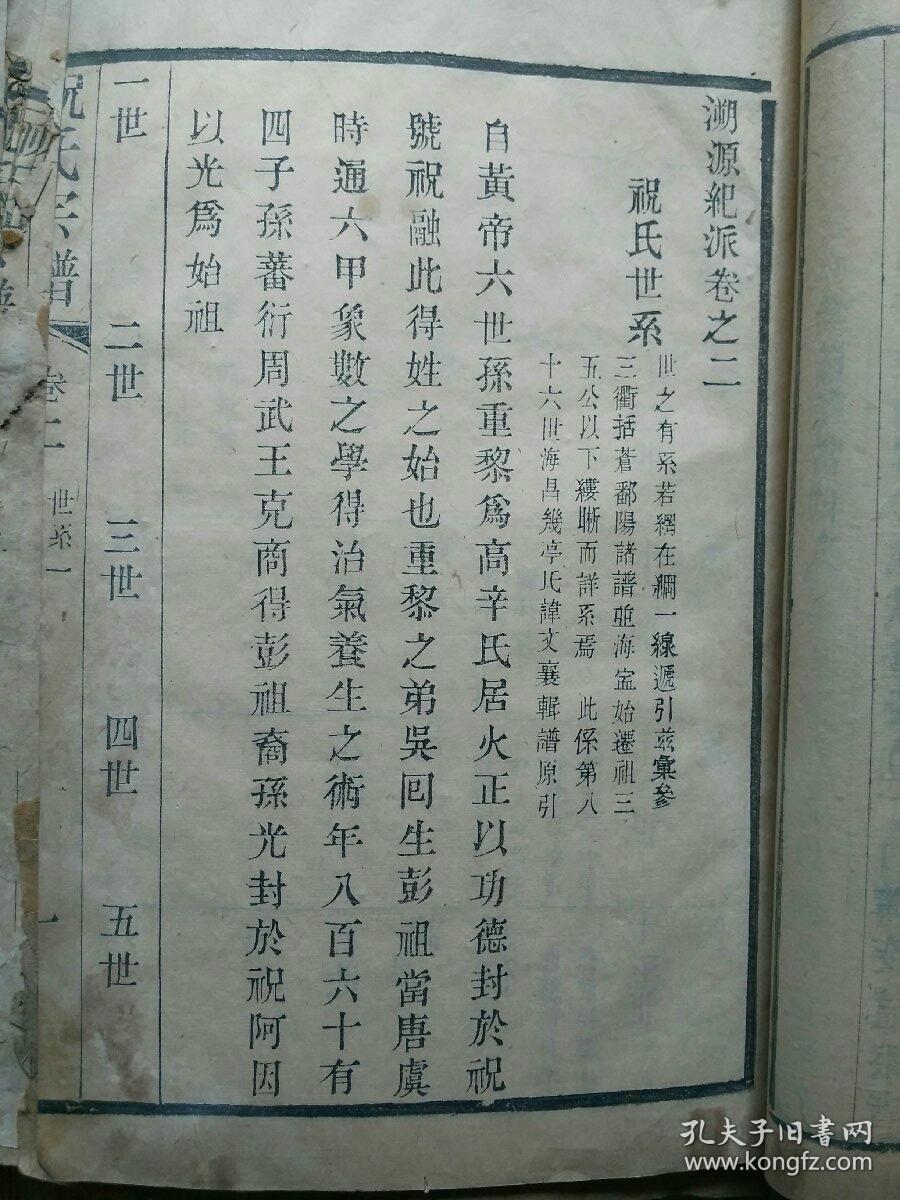 溯源紀派卷之二
祝氏世系
世之有系若網在綱一線遞引茲彙參
三衢括蒼鄱陽諸譜並海寍始遷祖三
五公以下縷晰而詳系焉 此係第八
十六世海昌幾亭氏諱文襄輯譜原引
自黃帝六世孫重黎爲高辛氏居火正以功德封於祝
號祝融此得姓之始也重黎之弟吳囘生彭祖當唐虞
時通六甲象數之學得治氣養生之術年八百六十有
四子孫蕃衍周武王克商得彭祖裔孫光封於祝阿因
以光爲始祖
一世 二世 三世 四世 五世
祝氏宗譜 卷二 世系一 一
孔夫子旧书网
www.kongfz.com